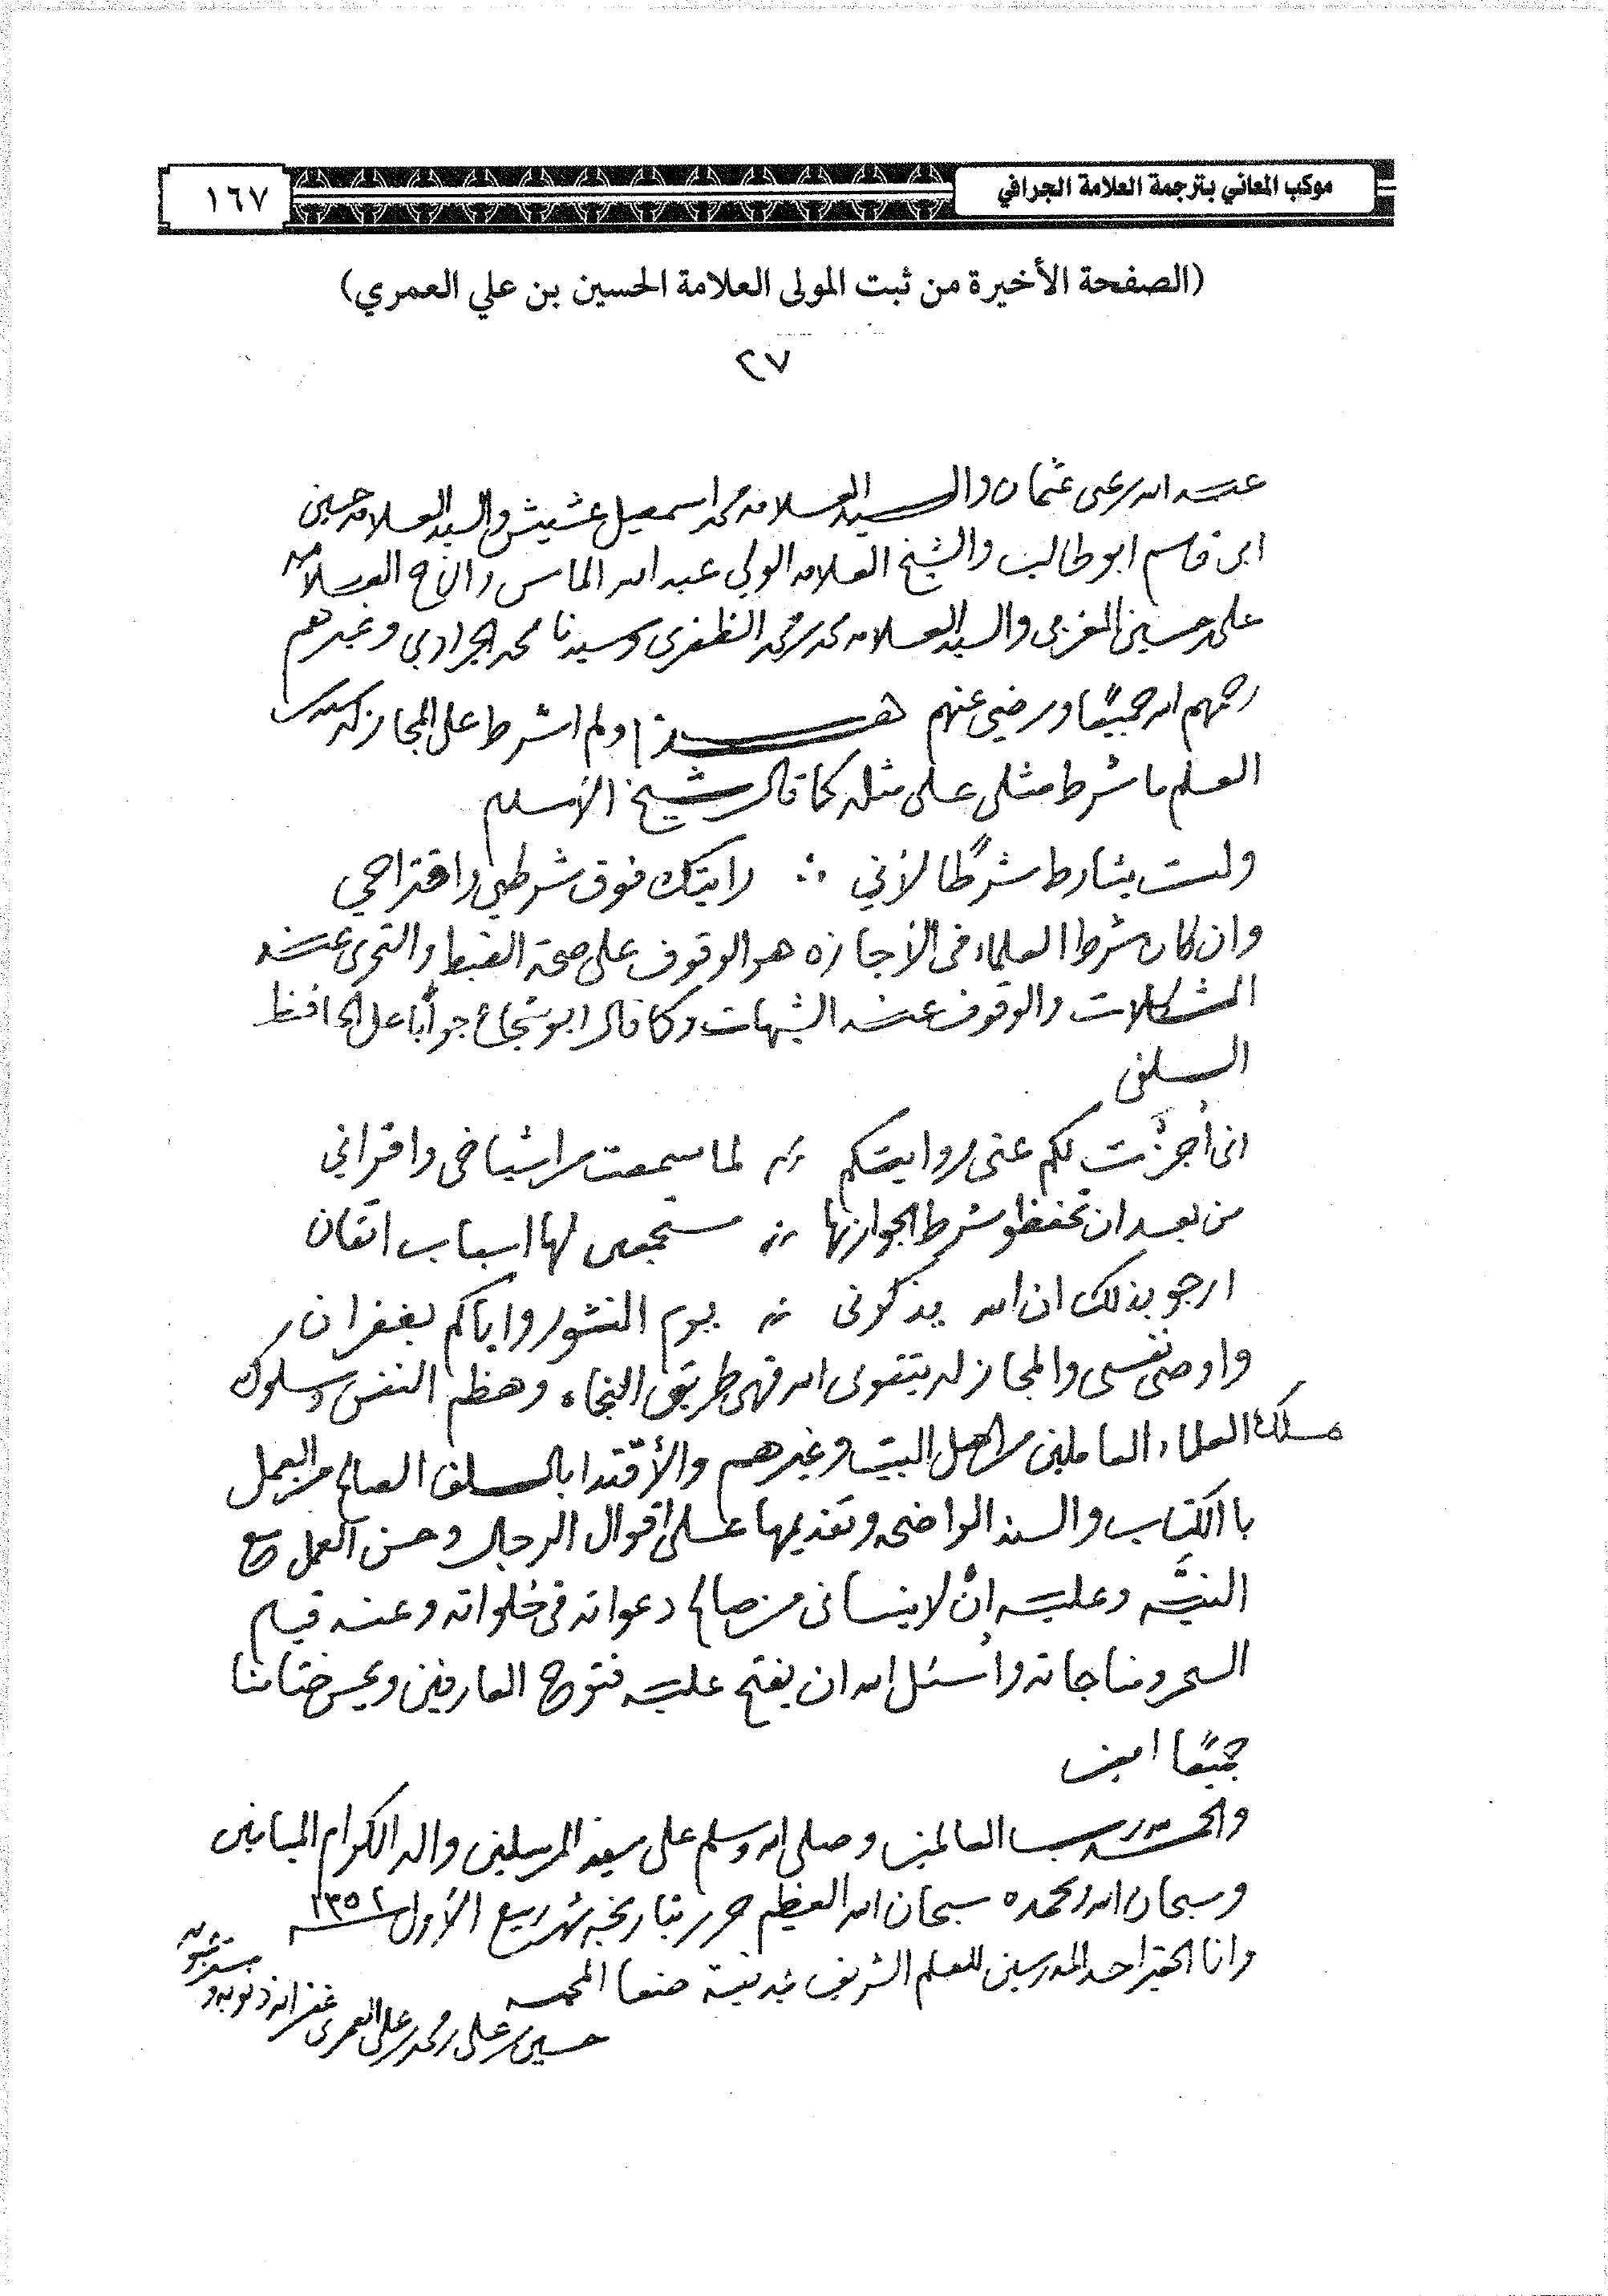 موكب المعاني بترجمة العلامة الجرافي
١٦٧
(الصفحة الأخيرة من ثبت المولى العلامة الحسين بن علي العمري)
٢٧
عبد الله بن على عثمان والسيد العلامه محمد اسمعيل عشيش والسيد العلامه حسين
ابن قاسم ابو طالب والشيخ العلامه الولي عبد الله الماس والاخ العلامه
على حسين المغربي والسيد العلامه محمد بن محمد الظفرى وسيدنا محمد الجرادي وغيرهم
رحمهم الله جميعًا ورضي عنهم هذا ولم اشرط على المجاز له
العلم ما شرط مثلى على مثله كما قال شيخ الأسلام
ولست بشارط شرطًا لأني ∴ رايتك فوق شرطي واقتراحي
وان كان شرط العلماء فى الأجازه هو الوقوف على صحة الضبط والتحرى عند
المشكلات والوقوف عند الشبهات وكما قال ابو شجاع جوابًا على الحافظ
السلفى
انى أجزت لكم عنى روايتكم لما سمعت من اشياخى واقرانى
من بعد ان تحفظو شرط الجواز لها مستجمعى لها اسباب اتقان
ارجو بذلك ان الله يذكرنى يوم النشور واياكم بغفران
واوصى نفسى والمجاز له بتقوى الله فهى طريق النجاه وهظم النفس وسلوك
مسلك العلماء العاملين من اهل البيت وغيرهم والأقتدا بالسلف الصالح من العمل
با الكتاب والسنه الواضحه وتقديمها على اقوال الرجال وحسن العمل مع
النيّه وعليه ان لا ينسانى من صالح دعواته فى خلواته وعند قيام
السحر ومناجاته وأسئل الله ان يفتح عليه فتوح العارفين ويحسن ختامنا
جميعًا امين
والحمد لله رب العالمين وصلى الله وسلم على سيد المرسلين واله الكرام الميامين
وسبحان الله وبحمده سبحان الله العظيم حرر بتاريخه شهر ربيع الأول سنه ١٣٥٢
وانا الحقير احد المدرسين للعلم الشريف بمدينة صنعا المحميه
حسين بن على بن محمد بن على العمرى غفر الله ذنوبه و
ستر عيوبه